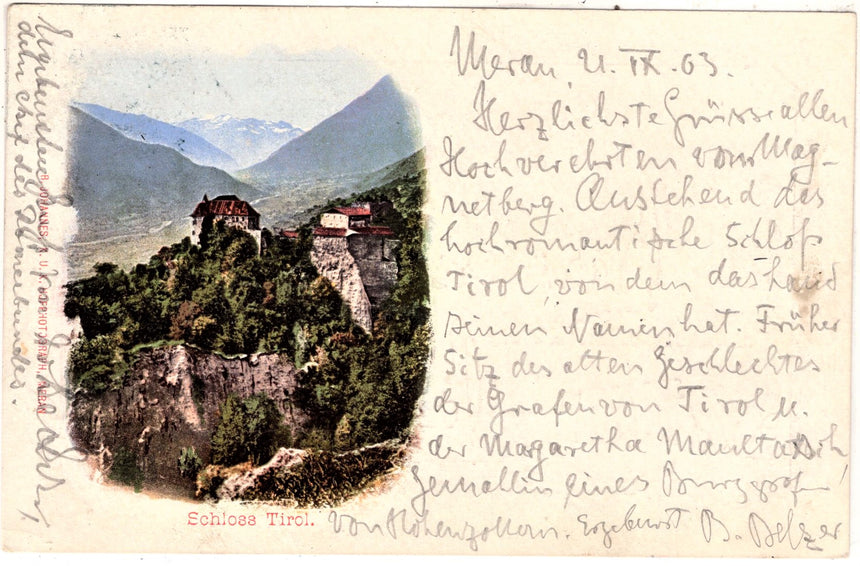 Meran, 21. IX. 03.
Herzlichste Grüsse allen
Hochverehrten vom Mag-
netberg. Anstehend das
hochromantische Schloß
Tirol, von dem das Land
seinen Namen hat. Früher
Sitz des alten Geschlechtes
der Grafen von Tirol u.
der Margaretha Maultasch
Gemallin eines Burggrafen
von Hohenzollern. Ergebenst B.
Schloss Tirol.
B. JOHANNES, K. U. K. HOFPHOTOGRAPH, MERAN